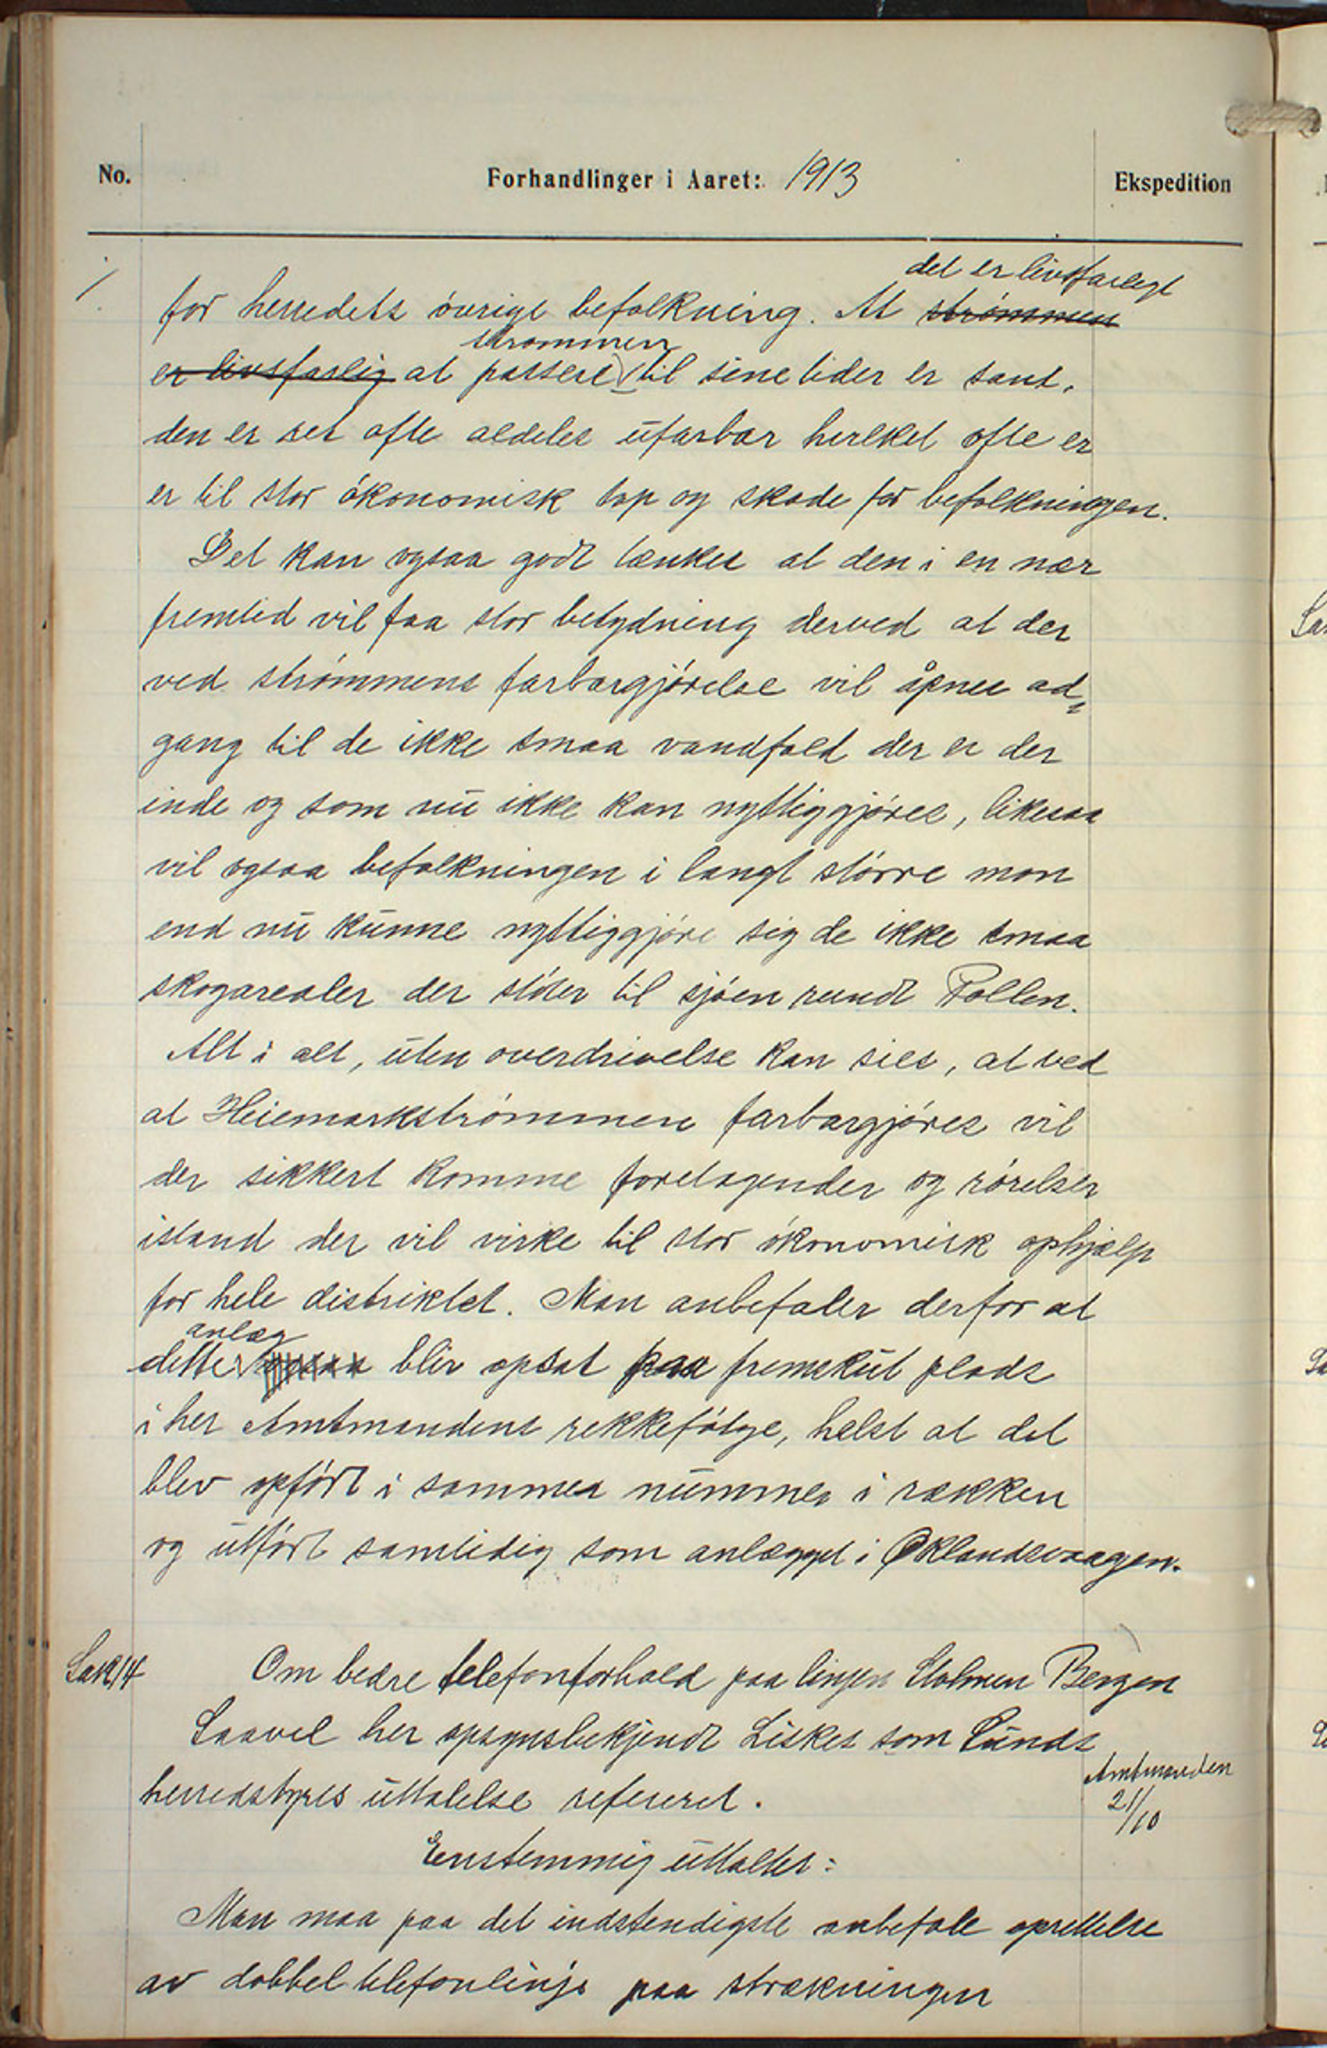 No. Forhandlinger i Aaret: 1913 Ekspedition
1. for herredets øvrige befolkning. At strømmen det er livsfarligt
er livsfarlig at passere strømmen til sine tider er sant.
den er set ofte aldeles ufarbar hvilket ofte er
er til stor økonomisk tap og skade for befolkningen.
Det kan ogsaa godt tænkes at den i en nær
fremtid vil faa stor betydning derved at der
ved strømmens farbargjørelse vil åpnes ad-
gang til de ikke smaa vandfald der er der
inde og som nu ikke kan nyttiggjøres, likesaa
vil ogsaa befolkningen i langt større mon
end nu kunne nyttiggjøre sig de ikke smaa
skogarealer der støter til sjøen rundt Pollen.
Alt i alt, uten overdrivelse kan sies, at ved
at Heiemarkstrømmen farbargjøres vil
der sikkert komme foretagender og rørelser
istand der vil virke til stor økonomisk ophjælp
for hele distriktet. Man anbefaler derfor at
dette anlæg blir opsat paa fremskut plads
i her Amtmandens rekkefølge, helst at det
blev opført i samme nummer i rækken
og utført samtidig som anlægget i Øklandsvaagen.
Sak 14 Om bedre telefonforhold paa linjen Stolmen Bergen
Saavel her opsynsbekjendt Liskes som Sunds
herredstyres uttalelse referert.
Amtmanden
21/10
Enstemmig uttaltes:
Man maa paa det indstendigste anbefale oprettelse
av dobbel telefonlinje paa strækningen